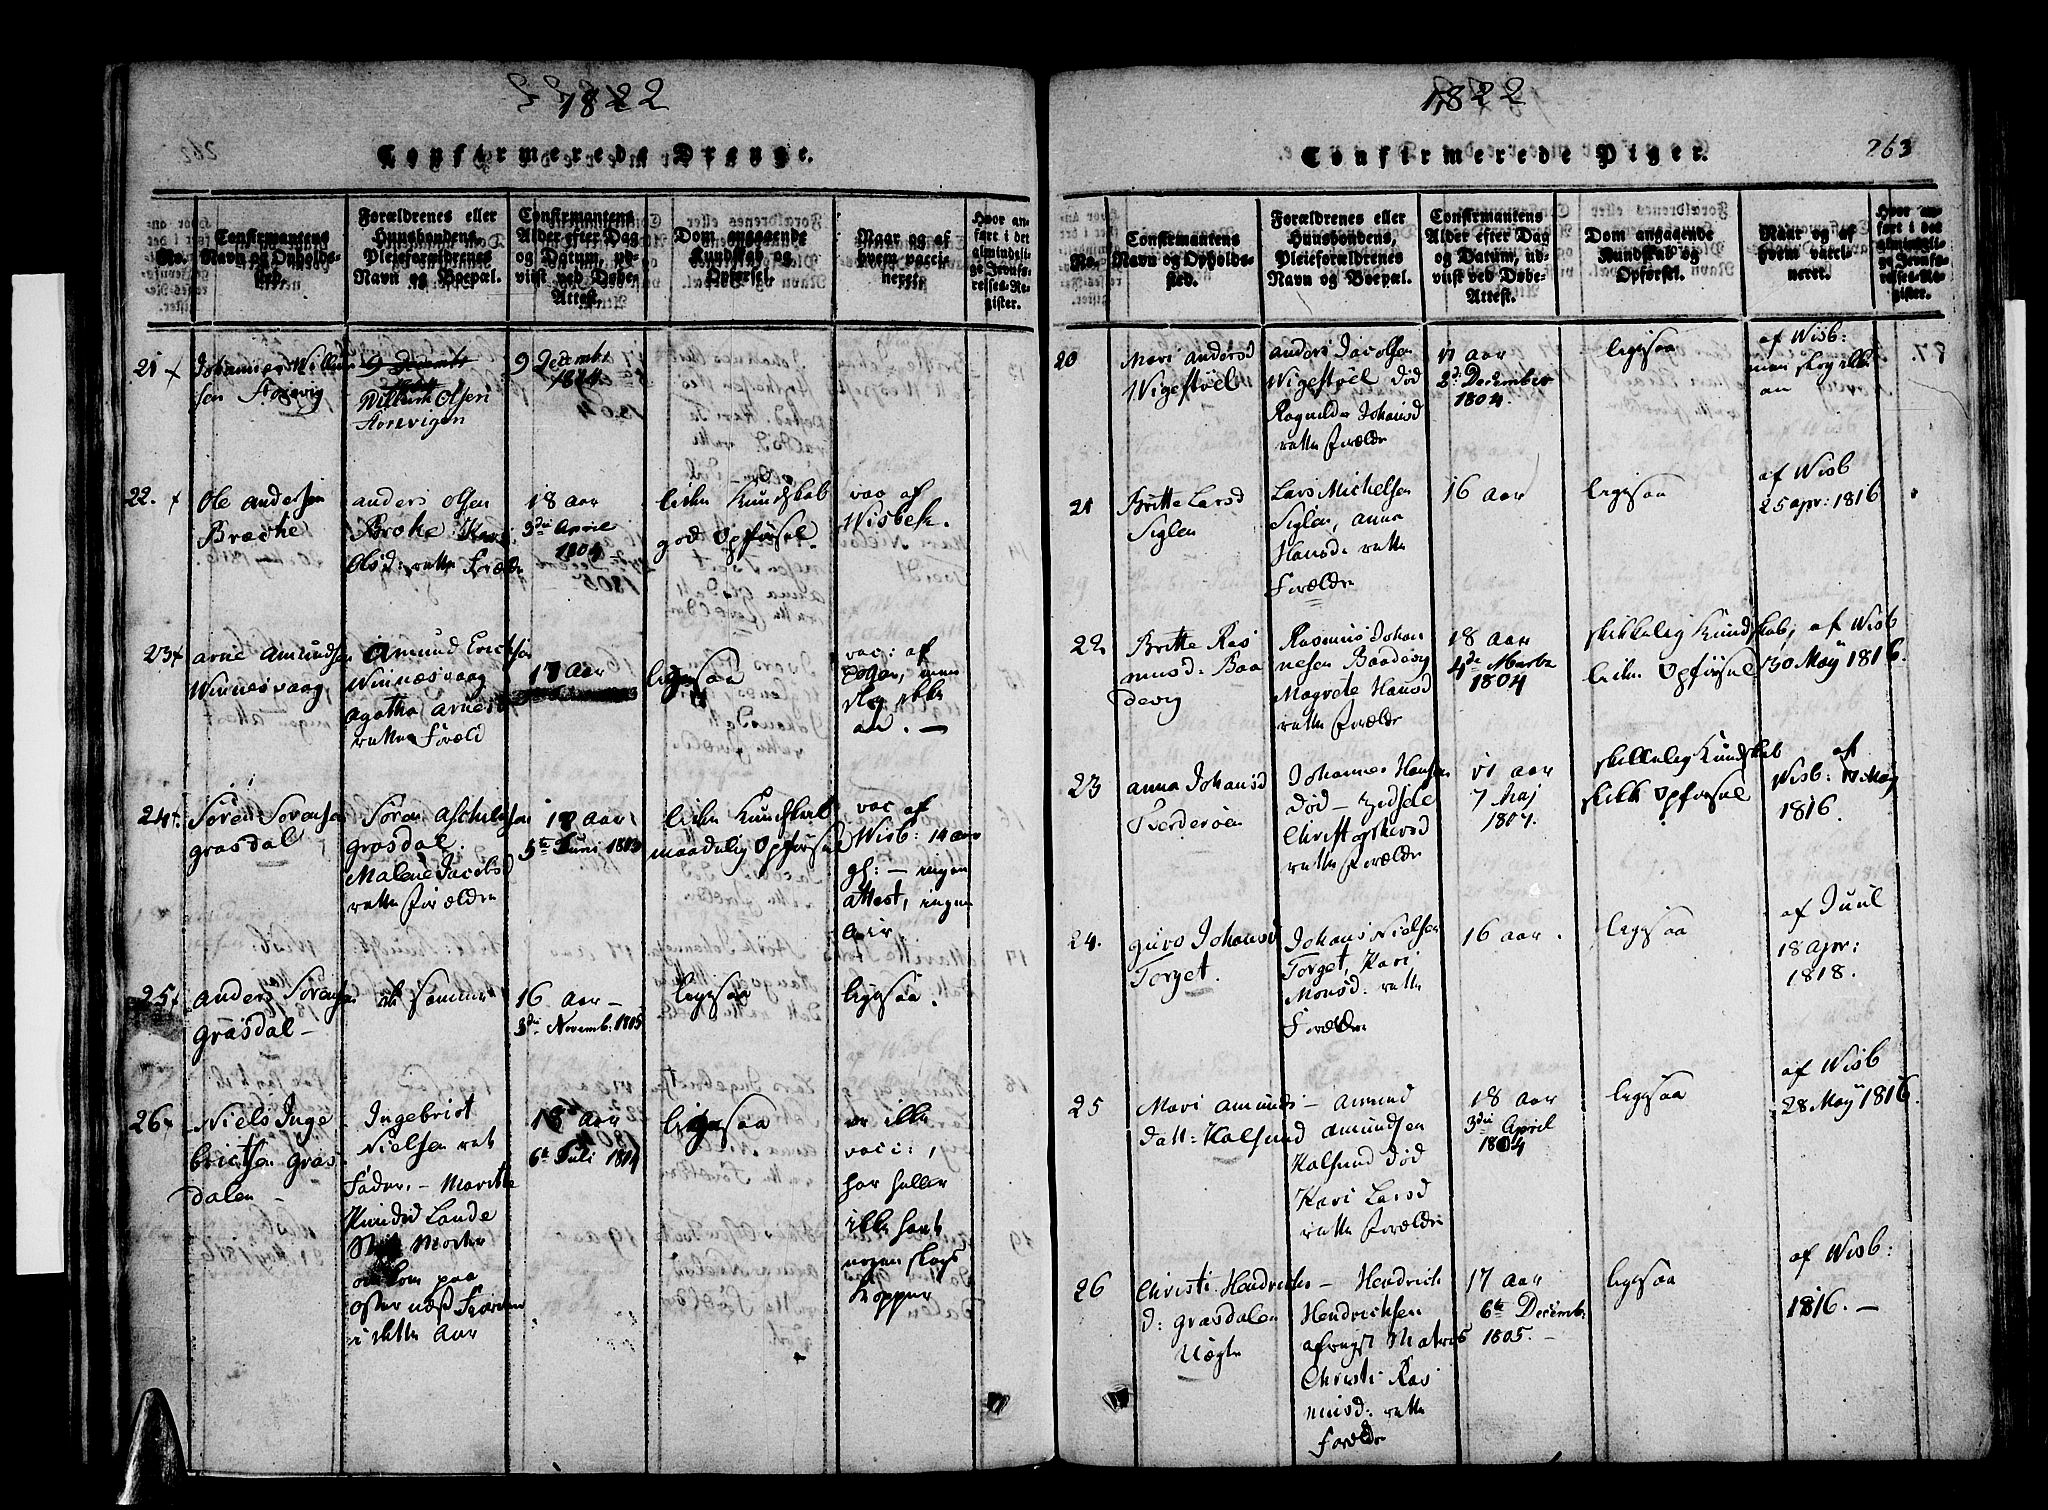 1822
Confirmerede Drenge.
No.
Confirmantens
Navn og Opholds-
sted.
Forældrenes eller
Huusbondens,
Pleieforældrenes
Navn og Boepæl.
Confirmantens
Alder efter Dag
og Datum, ud-
viist ved Døbe-
Attest.
Dom angaaende
Kundskab og
Opførsel.
Naar og af
hvem vacci-
neret.
Hvor an-
ført i det
almindeli-
ge Jevnfø-
relses-Re-
gister.
21 x
Johannes Willum
sen Storevig
9 Decembr
Willum Olsen
Storevigen
9 Decembr
1804
22. x
Ole Andersen
Broche
Anders Olsen
Broke Kari
Olsd: rette Forælde
18 aar
3die April
1804
liden Kundskab
god Opførsel.
vac af
Wisbek.
23 x
Arne Amundsen
Winnesvaag
Amund Ericksen
Winnesvaag
Agatha Arnesd
rette Foræld
17 Aar
ligesaa
vac: af
men
slog ikke
an. —
24 x
Sören Sörensen
grasdal
Sören Aschelsen
grasdal.
Malene Jacobsd
rette Forældre
18 aar
5te Juni 1803
liden Kundskab
maadelig Opførsel
vac af
Wisb: 14 aar
gl: — ingen
attest, ingen
25 x
Anders Sörensen
Grasdal —
de samme
16 aar —
3die Novemb: 1805
ligesaa
ligesaa.
26 x
Niels Inge
brictsen Gras
dalen —
Ingebrict
Nielsen ret
Fader. — Maritte
Knudsd Lande
Moder
omkom paa
oster næs Fiorden
i dette Aar
18 aar
6te Juli 1804
ligesaa
er ikke
vacc:,
har heller
ikke havt
nogen slags
Kopper
1822
Confirmerede Piger.
263
No.
Confirmantens
Navn og Opholds-
sted.
Forældrenes eller
Huusbondens,
Pleieforældrenes
Navn og Boepæl.
Confirmantens
Alder efter Dag
og Datum, ud-
viist ved Døbe-
Attest.
Dom angaaende
Kundskab og
Opførsel.
Naar og af
hvem vacci-
neret.
Hvor an-
ført i det
almindeli-
ge Jevnfø-
relses-Re-
gister.
20
Mari Andersd
Wigestöel
Anders Jacobsen
Wigestöel död
Ragnilde Johansd
rette Forælde
17 aar
2de December
1804.
ligesaa
af Wisb:
men slog ikke
an
21
Britte Larsd
Siglen
Lars Michelsen
Siglen, Anna
Hansd: rette
Forældre
16 aar
ligesaa
af Wisb
25 apr: 1816
22
Britte Ras
musd: Baa
devig
Rasmus Johan
nesen Baadevig
Magrete Hansd
rette Forældre
18 aar
4de Martz
1804
skikkelig Kundskab,
liden Opførsel
af Wisb
30 May 1816.
23
Anna Johansd
Ferderöen
Johannes Hansen
Död — Zidsele
Christophersd
rette Forældre
17 aar
7 Maj
1804.
skikkelig Kundskab
skikk Opførsel
af
Wisb: 17 May
1816.
24.
Guro Johansd
Torget.
Johans Nielsen
Torget, Kari
Monsd: rette
Forældre
16 aar.
ligesaa
af Juul
18 apr:
1818.
25
Mari Amunds
datt: Kalsund
— Amund
Amundsen
Kalsund död
Kari Larsd
rette Forældre
18 aar
3die April
1804
ligesaa
af Wisb
28 May 1816.
26
Christi Hendrichs
d: Grasdalen
— Hendrich
Hendricksen
Christi Ras
musd: rette
Forældre
17 aar
6te Decemb:
1805. —
ligesaa
af Wisb:
1816. —